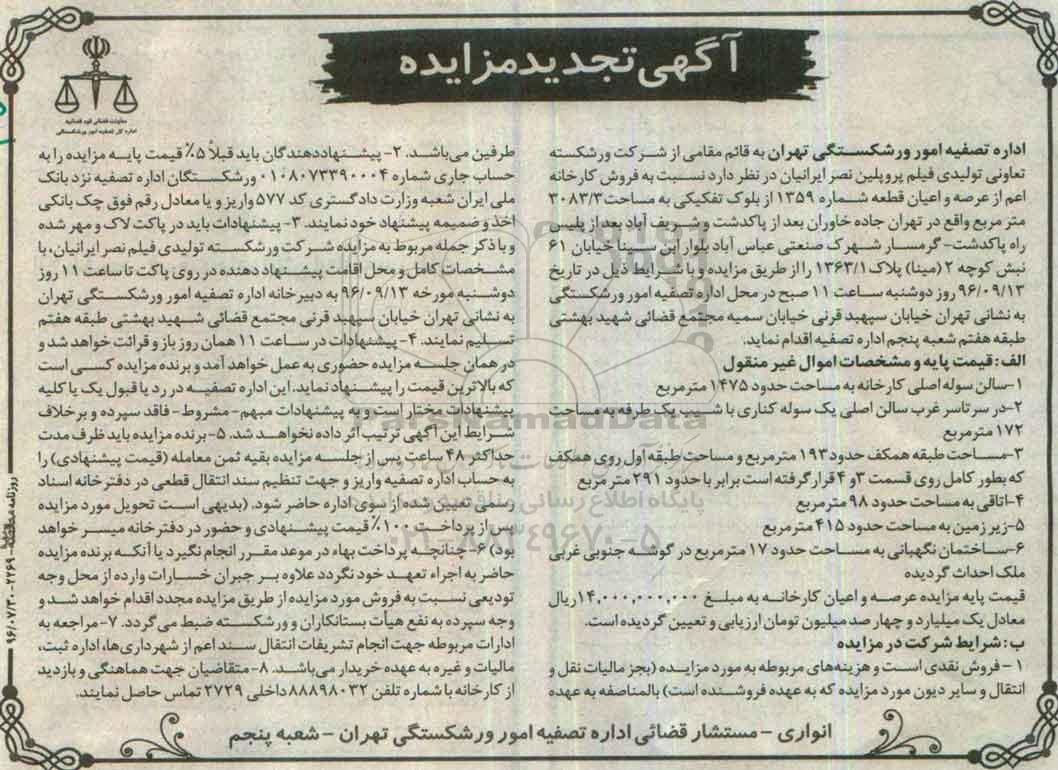 آگهی تجدید مزایده
معاونت قضائی قوه قضائیه
اداره کل تصفیه امور ورشکستگی
اداره تصفیه امور ورشکستگی تهران به قائم مقامی از شرکت ورشکسته
تعاونی تولیدی فیلم پروپلین نصر ایرانیان در نظر دارد نسبت به فروش کارخانه
اعم از عرصه و اعیان قطعه شماره ۱۳۵۹ از بلوک تفکیکی به مساحت ۳۰۸۳/۳
متر مربع واقع در تهران جاده خاوران بعد از پاکدشت و شریف آباد بعد از پلیس
راه پاکدشت- گرمسار شهرک صنعتی عباس آباد بلوار ابن سینا خیابان ۶۱
نبش کوچه ۲ (مینا) پلاک ۱۳۶۳/۱ را از طریق مزایده و با شرایط ذیل در تاریخ
۹۶/۰۹/۱۳ روز دوشنبه ساعت ۱۱ صبح در محل اداره تصفیه امور ورشکستگی
به نشانی تهران خیابان سپهبد قرنی خیابان سمیه مجتمع قضائی شهید بهشتی
طبقه هفتم شعبه پنجم اداره تصفیه اقدام نماید.
الف: قیمت پایه و مشخصات اموال غیر منقول
۱-سالن سوله اصلی کارخانه به مساحت حدود ۱۴۷۵ مترمربع
۲-در سرتاسر غرب سالن اصلی یک سوله کناری با شیب یک طرفه به مساحت
۱۷۲ مترمربع
۳-مساحت طبقه همکف حدود ۱۹۳ مترمربع و مساحت طبقه اول روی همکف
که بطور کامل روی قسمت ۳ و ۴ قرار گرفته است برابر با حدود ۲۹۱ متر مربع
۴-اتاقی به مساحت حدود ۹۸ مترمربع
۵-زیر زمین به مساحت حدود ۴۱۵ مترمربع
۶-ساختمان نگهبانی به مساحت حدود ۱۷ مترمربع در گوشه جنوبی غربی
ملک احداث گردیده
قیمت پایه مزایده عرصه و اعیان کارخانه به مبلغ ۱۴,۰۰۰,۰۰۰,۰۰۰ ریال
معادل یک میلیارد و چهار صد میلیون تومان ارزیابی و تعیین گردیده است.
ب: شرایط شرکت در مزایده
۱- فروش نقدی است و هزینه‌های مربوطه به مورد مزایده (بجز مالیات نقل و
انتقال و سایر دیون مورد مزایده که به عهده فروشنده است) بالمناصفه به عهده
طرفین می‌باشد. ۲- پیشنهاددهندگان باید قبلاً ۵٪ قیمت پایه مزایده را به
حساب جاری شماره ۰۱۰۸۰۷۳۳۹۰۰۰۴ ورشکستگان اداره تصفیه نزد بانک
ملی ایران شعبه وزارت دادگستری کد ۵۷۷ واریز و یا معادل رقم فوق چک بانکی
اخذ و ضمیمه پیشنهاد خود نمایند. ۳- پیشنهادات باید در پاکت لاک و مهر شده
و با ذکر جمله مربوط به مزایده شرکت ورشکسته تولیدی فیلم نصر ایرانیان، با
مشخصات کامل و محل اقامت پیشنهاد دهنده در روی پاکت تا ساعت ۱۱ روز
دوشنبه مورخه ۹۶/۰۹/۱۳ به دبیرخانه اداره تصفیه امور ورشکستگی تهران
به نشانی تهران خیابان سپهبد قرنی مجتمع قضائی شهید بهشتی طبقه هفتم
تسلیم نمایند. ۴- پیشنهادات در ساعت ۱۱ همان روز باز و قرائت خواهد شد و
در همان جلسه مزایده حضوری به عمل خواهد آمد و برنده مزایده کسی است
که بالاترین قیمت را پیشنهاد نماید. این اداره تصفیه در رد یا قبول یک یا کلیه
پیشنهادات مختار است و به پیشنهادات مبهم- مشروط- فاقد سپرده و برخلاف
شرایط این آگهی ترتیب اثر داده نخواهد شد. ۵- برنده مزایده باید ظرف مدت
حداکثر ۴۸ ساعت پس از جلسه مزایده بقیه ثمن معامله (قیمت پیشنهادی) را
به حساب اداره تصفیه واریز و جهت تنظیم سند انتقال قطعی در دفترخانه اسناد
رسمی تعیین شده از سوی اداره حاضر شود. (بدیهی است تحویل مورد مزایده
پس از پرداخت ۱۰۰٪ قیمت پیشنهادی و حضور در دفترخانه میسر خواهد
بود) ۶- چنانچه پرداخت بهاء در موعد مقرر انجام نگیرد یا آنکه برنده مزایده
حاضر به اجراء تعهد خود نگردد علاوه بر جبران خسارات وارده از محل وجه
تودیعی نسبت به فروش مورد مزایده از طریق مزایده مجدد اقدام خواهد شد و
وجه سپرده به نفع هیأت بستانکاران و ورشکسته ضبط می گردد. ۷- مراجعه به
ادارات مربوطه جهت انجام تشریفات انتقال سند اعم از شهرداری‌ها، اداره ثبت،
مالیات و غیره به عهده خریدار می‌باشد. ۸- متقاضیان جهت هماهنگی و بازدید
از کارخانه با شماره تلفن ۸۸۸۹۸۰۳۲ داخلی ۲۷۲۹ تماس حاصل نمایند.
انواری - مستشار قضائی اداره تصفیه امور ورشکستگی تهران - شعبه پنجم
ParsNamadData
پایگاه اطلاع رسانی مناقصه و مزایده
۰۲۱-۸۸۳۴۹۶۷۰-۵
۹۶/۰۷/۳۰-۲۲۶۹